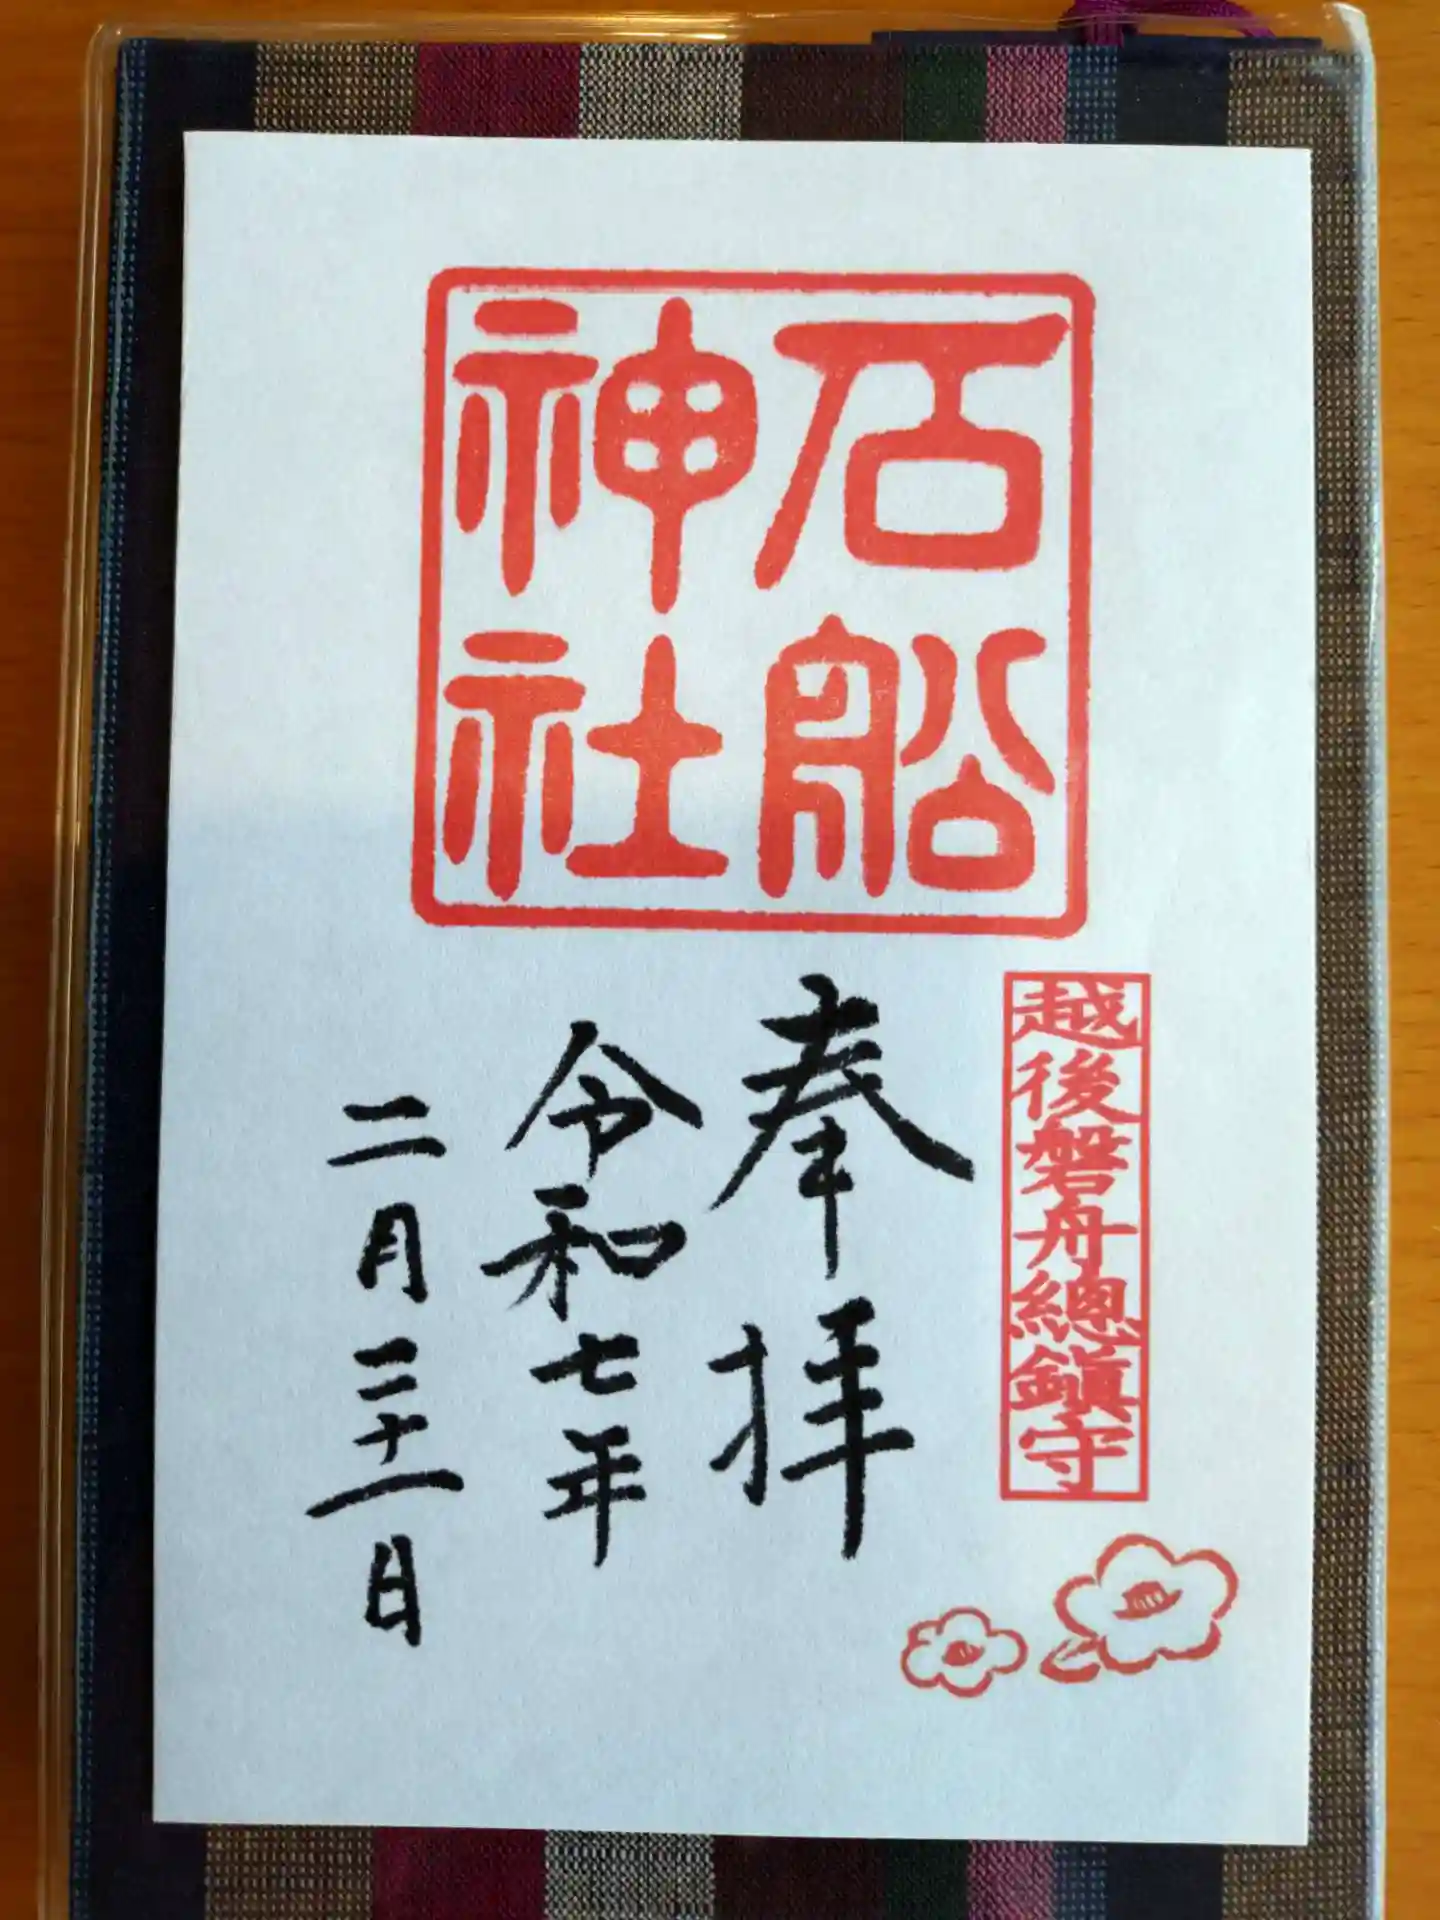 石船
神社
越後磐舟總鎮守
奉拝
令和七年
二月二十一日